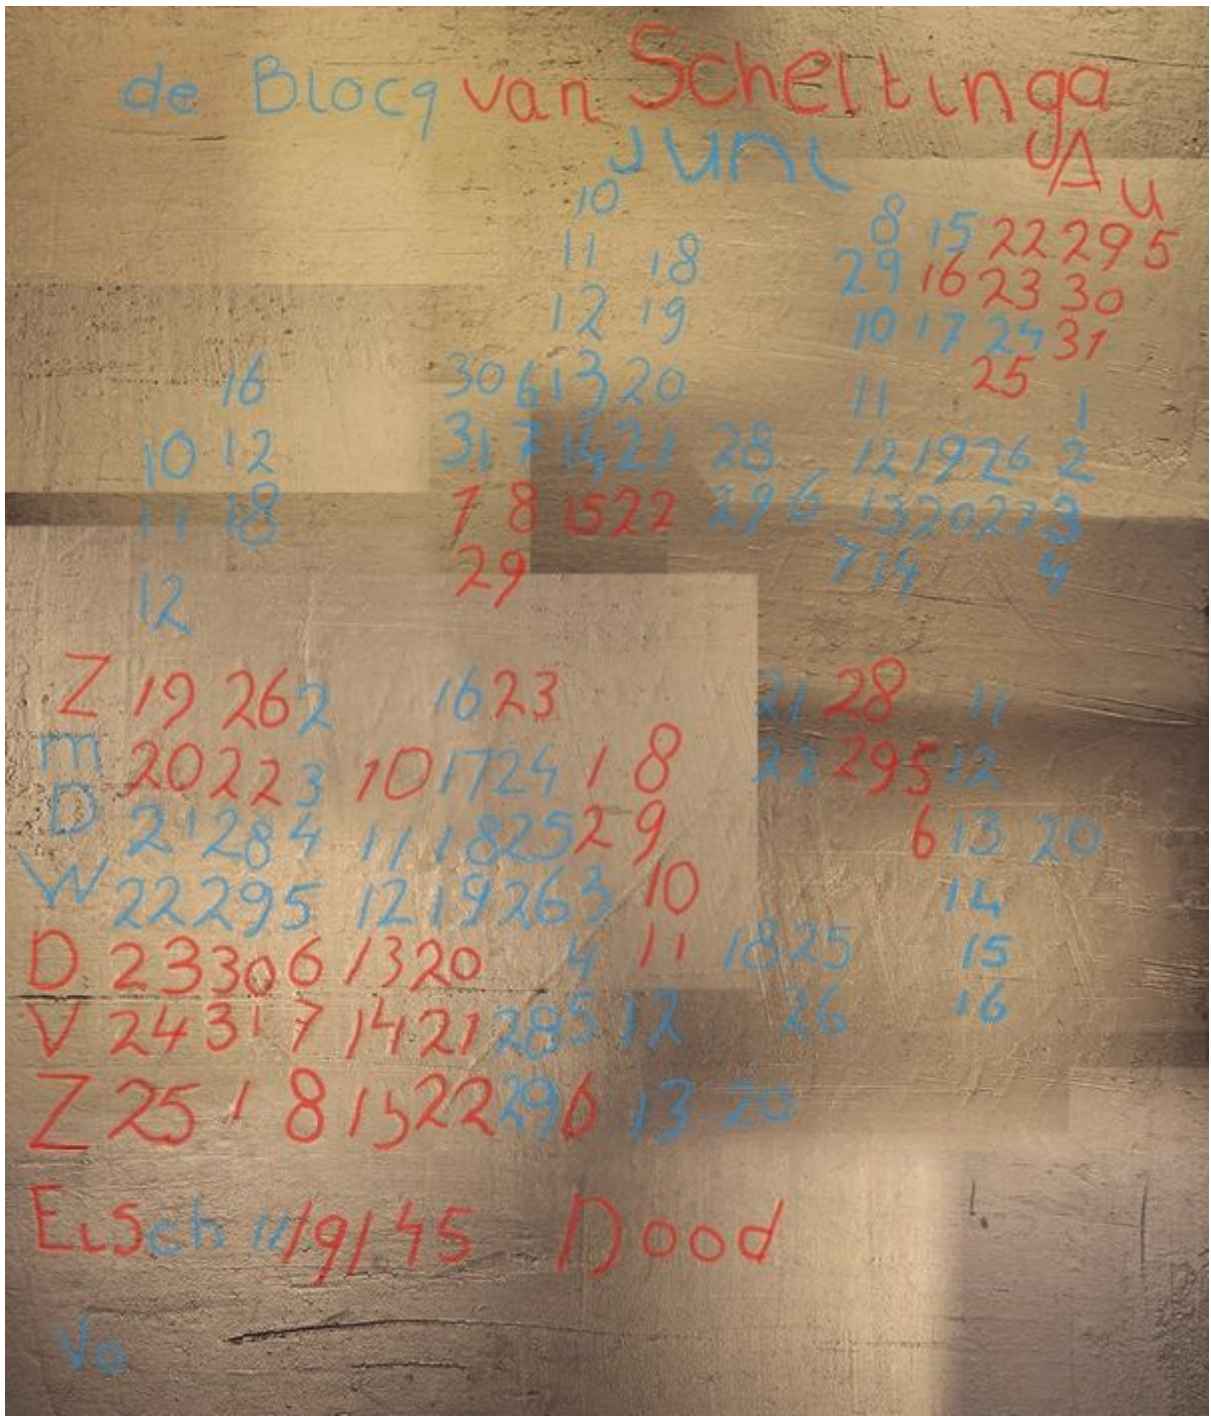 de Blocq van Scheltinga
Juni Au
10 8 15 22 29 5
11 18 29 16 23 30
12 19 10 17 24 31
16 30 6 13 20 11 25 1
10 12 31 7 14 21 28 12 19 26 2
11 18 7 8 15 22 29 6 13 20 27 3
12 29 7 14 4
Z 19 26 2 16 23 21 28 11
m 20 22 3 10 17 24 1 8 22 29 5 12
D 21 28 4 11 18 25 2 9 6 13 20
W 22 29 5 12 19 26 3 10 14
D 23 30 6 13 20 4 11 18 25 15
V 24 31 7 14 21 28 5 12 26 16
Z 25 1 8 15 22 29 6 13 20
Eisch 11/9/45 Dood
Vo